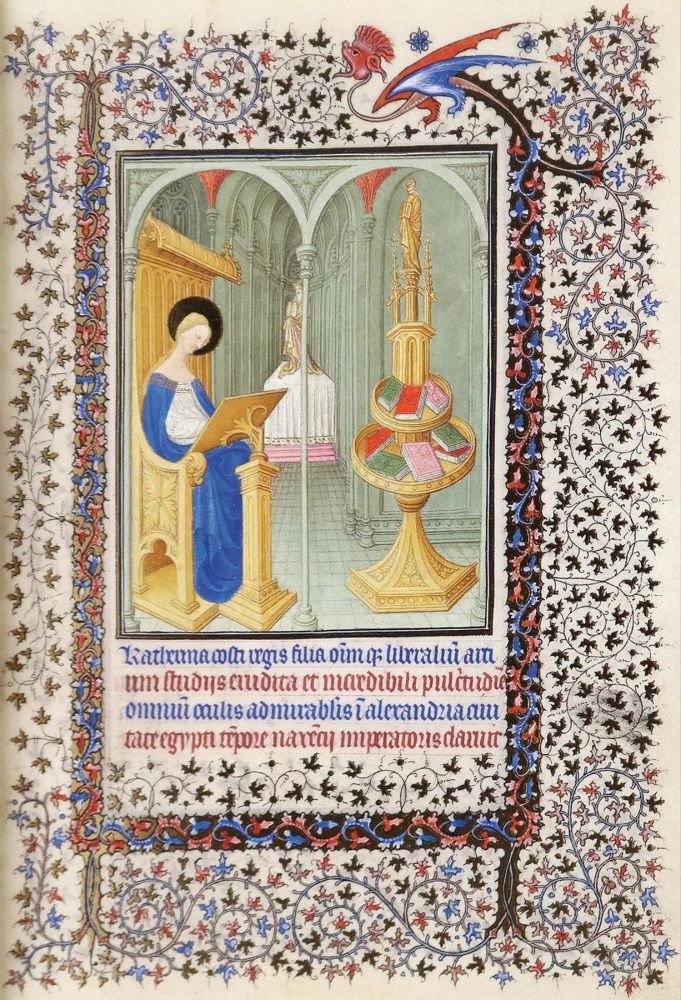 Katherina costi regis filia om̄m q; liberaliū arti
um studijs erudita et incredibili pulc̄tudīe
omniū oculis admirabl̄is ī alexandria ciui
tate egypti tēpore naxēcij imperatoris claruit